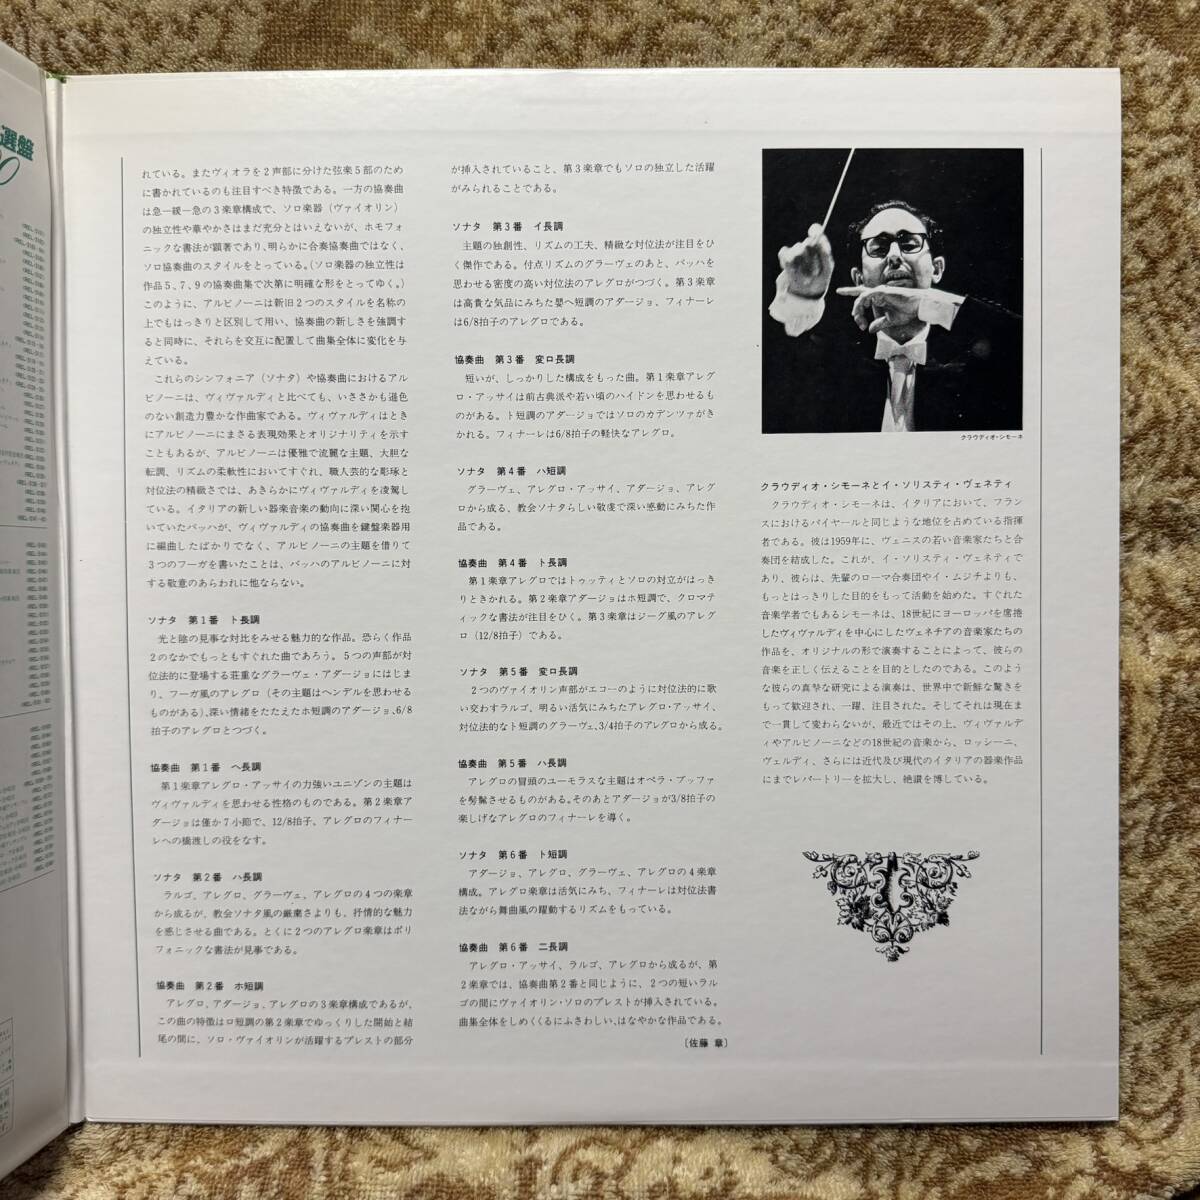 選盤
れている。またヴィオラを2声部に分けた弦楽5部のため
に書かれているのも注目すべき特徴である。一方の協奏曲
は急―緩―急の3楽章構成で、ソロ楽器（ヴァイオリン）
の独立性や華やかさはまだ充分とはいえないが、ホモフォ
ニックな書法が顕著であり、明らかに合奏協奏曲ではなく、
ソロ協奏曲のスタイルをとっている。（ソロ楽器の独立性は
作品5、7、9の協奏曲集で次第に明確な形をとってゆく。）
このように、アルビノーニは新旧2つのスタイルを名称の
上でもはっきりと区別して用い、協奏曲の新しさを強調す
ると同時に、それらを交互に配置して曲集全体に変化を与
えている。
これらのシンフォニア（ソナタ）や協奏曲におけるアル
ビノーニは、ヴィヴァルディと比べても、いささかも遜色
のない創造力豊かな作曲家である。ヴィヴァルディはとき
にアルビノーニにまさる表現効果とオリジナリティを示す
こともあるが、アルビノーニは優雅で流麗な主題、大胆な
転調、リズムの柔軟性においてすぐれ、職人芸的な彫琢と
対位法の精緻さでは、あきらかにヴィヴァルディを凌駕し
ている。イタリアの新しい器楽音楽の動向に深い関心を抱
いていたバッハが、ヴィヴァルディの協奏曲を鍵盤楽器用
に編曲したばかりでなく、アルビノーニの主題を借りて
3つのフーガを書いたことは、バッハのアルビノーニに対
する敬意のあらわれに他ならない。
ソナタ 第1番 ト長調
光と陰の見事な対比をみせる魅力的な作品。恐らく作品
2のなかでもっともすぐれた曲であろう。5つの声部が対
位法的に登場する荘重なグラーヴェ・アダージョにはじま
り、フーガ風のアレグロ（その主題はヘンデルを思わせる
ものがある）、深い情緒をたたえたホ短調のアダージョ、6/8
拍子のアレグロとつづく。
協奏曲 第1番 ヘ長調
第1楽章アレグロ・アッサイの力強いユニゾンの主題は
ヴィヴァルディを思わせる性格のものである。第2楽章ア
ダージョは僅か7小節で、12/8拍子、アレグロのフィナー
レへの橋渡しの役をなす。
ソナタ 第2番 ハ長調
ラルゴ、アレグロ、グラーヴェ、アレグロの4つの楽章
から成るが、教会ソナタ風の厳粛さよりも、抒情的な魅力
を感じさせる曲である。とくに2つのアレグロ楽章はポリ
フォニックな書法が見事である。
協奏曲 第2番 ホ短調
アレグロ、アダージョ、アレグロの3楽章構成であるが、
この曲の特徴はロ短調の第2楽章でゆっくりした開始と結
尾の間に、ソロ・ヴァイオリンが活躍するプレストの部分
が挿入されていること、第3楽章でもソロの独立した活躍
がみられることである。
ソナタ 第3番 イ長調
主題の独創性、リズムの工夫、精緻な対位法が注目をひ
く傑作である。付点リズムのグラーヴェのあと、バッハを
思わせる密度の高い対位法のアレグロがつづく。第3楽章
は高貴な気品にみちた嬰ヘ短調のアダージョ、フィナーレ
は6/8拍子のアレグロである。
協奏曲 第3番 変ロ長調
短いが、しっかりした構成をもった曲。第1楽章アレグ
ロ・アッサイは前古典派や若い頃のハイドンを思わせるも
のがある。ト短調のアダージョではソロのカデンツァがき
かれる。フィナーレは6/8拍子の軽快なアレグロ。
ソナタ 第4番 ハ短調
グラーヴェ、アレグロ・アッサイ、アダージョ、アレグ
ロから成る、教会ソナタらしい敬虔で深い感動にみちた作
品である。
協奏曲 第4番 ト長調
第1楽章アレグロではトゥッティとソロの対立がはっき
りときかれる。第2楽章アダージョはホ短調で、クロマテ
ィックな書法が注目をひく。第3楽章はジーグ風のアレグ
ロ（12/8拍子）である。
ソナタ 第5番 変ロ長調
2つのヴァイオリン声部がエコーのように対位法的に歌
い交わすラルゴ、明るい活気にみちたアレグロ・アッサイ、
対位法的なト短調のグラーヴェ、3/4拍子のアレグロから成る。
協奏曲 第5番 ハ長調
アレグロの冒頭のユーモラスな主題はオペラ・ブッファ
を髣髴させるものがある。そのあとアダージョが3/8拍子の
楽しげなアレグロのフィナーレを導く。
ソナタ 第6番 ト短調
アダージョ、アレグロ、グラーヴェ、アレグロの4楽章
構成。アレグロ楽章は活気にみち、フィナーレは対位法書
法ながら舞曲風の躍動するリズムをもっている。
協奏曲 第6番 ニ長調
アレグロ・アッサイ、ラルゴ、アレグロから成るが、第
2楽章では、協奏曲第2番と同じように、2つの短いラル
ゴの間にヴァイオリン・ソロのプレストが挿入されている。
曲集全体をしめくくるにふさわしい、はなやかな作品である。
〔佐藤 章〕
クラウディオ・シモーネ
クラウディオ・シモーネとイ・ソリスティ・ヴェネティ
クラウディオ・シモーネは、イタリアにおいて、フラン
スにおけるパイヤールと同じような地位を占めている指揮
者である。彼は1959年に、ヴェニスの若い音楽家たちと合
奏団を結成した。これが、イ・ソリスティ・ヴェネティで
あり、彼らは、先輩のローマ合奏団やイ・ムジチよりも、
もっとはっきりした目的をもって活動を始めた。すぐれた
音楽学者でもあるシモーネは、18世紀にヨーロッパを席捲
したヴィヴァルディを中心にしたヴェネチアの音楽家たちの
作品を、オリジナルの形で演奏することによって、彼らの
音楽を正しく伝えることを目的としたのである。このよう
な彼らの真摯な研究による演奏は、世界中で新鮮な驚きを
もって歓迎され、一躍、注目された。そしてそれは現在ま
で一貫して変わらないが、最近ではその上、ヴィヴァルデ
ィやアルビノーニなどの18世紀の音楽から、ロッシーニ、
ヴェルディ、さらには近代及び現代のイタリアの器楽作品
にまでレパートリーを拡大し、絶讃を博している。